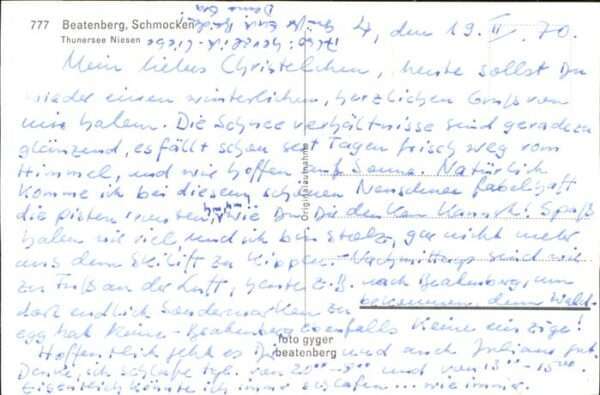 777 Beatenberg, Schmocken
Thunersee Niesen
4, den 19. II. 70.
Mein liebes Christelchen, heute sollst Du
wieder einen winterlichen, herzlichen Gruß von
mir haben. Die Schneeverhältnisse sind geradezu
glänzend, es fällt schon seit Tagen frisch weg vom
Himmel, und wir hoffen auf Sonne. Natürlich
komme ich bei diesem schönen Neuschnee fabelhaft
die Pisten runter, wie Du Dir denken kannst! Spaß
haben wir viel, und ich bin stolz, gar nicht mehr
aus dem Skilift zu kippen. Nachmittags sind wir
zu Fuß an der Luft, heute z.B. nach Beatenberg, um
dort endlich Sondermarken zu bekommen, denn Wald-
egg hat keine - Beatenberg ebenfalls keine einzige!
Hoffentlich geht es Dir und auch Juliane gut.
Denke, ich schlafe tgl. von 20°° - 8°° und von 13°° - 15°°.
Eigentlich könnte ich immer schlafen... wie immer.
Originalaufnahme
foto gyger
beatenberg